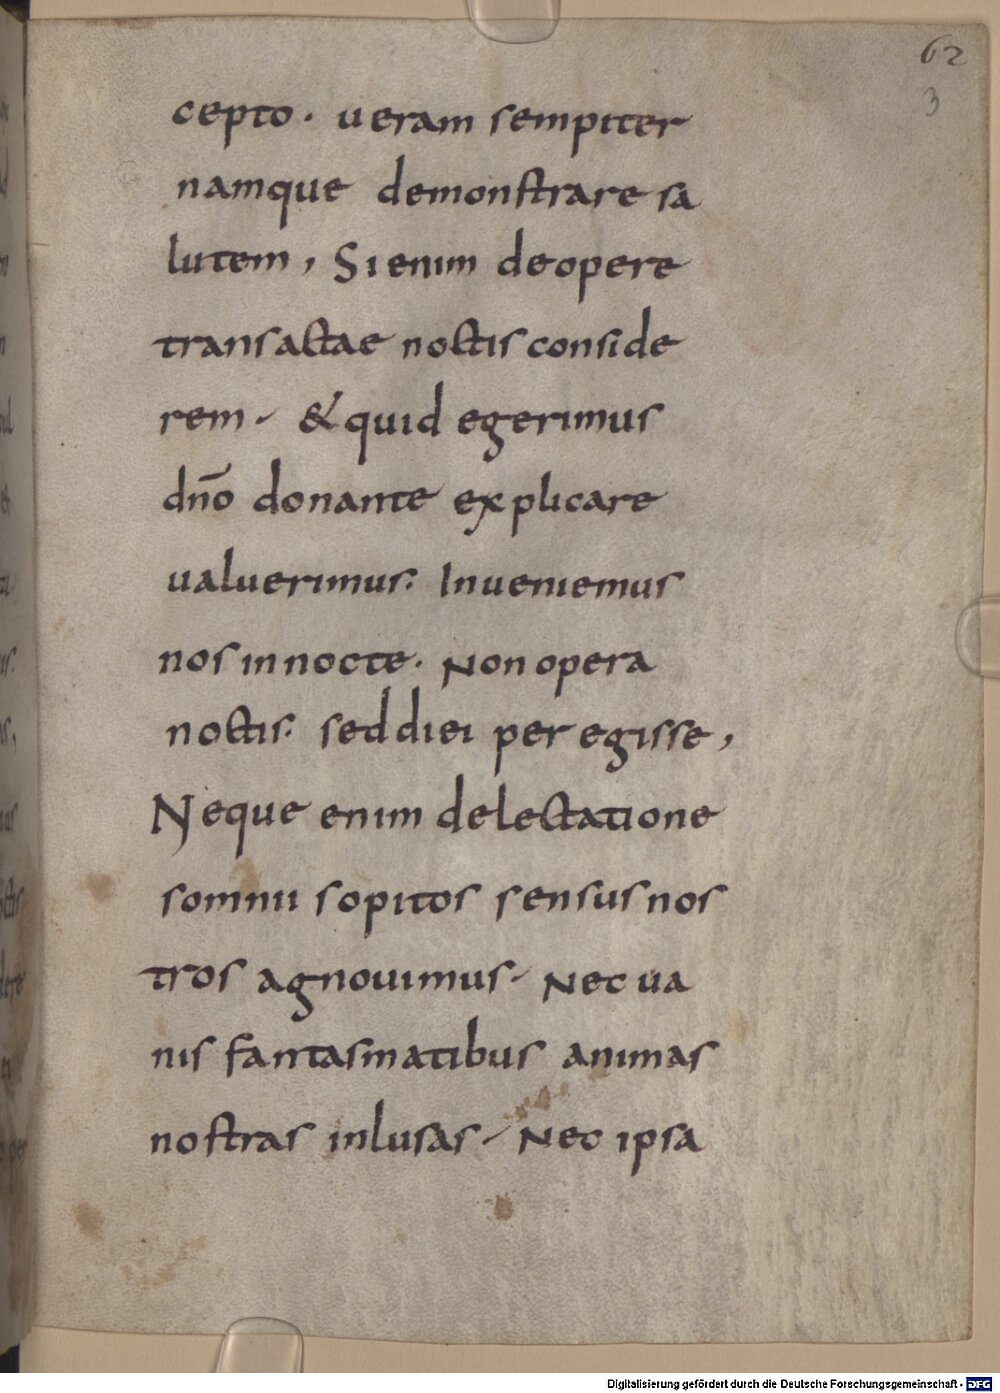 62
3
cepto · ueram sempiter
namque demonstrare sa
lutem, Si enim de opere
transactae noctis conside
rem · & quid egerimus
dn̄o donante explicare
ualuerimus: Inueniemus
nos in nocte · Non opera
noctis: sed diei peregisse,
Neque enim delectatione
somnii sopitos sensus nos
tros agnouimus · Nec ua
nis fantasmatibus animas
nostras inlusas · Nec ipsa
Digitalisierung gefördert durch die Deutsche Forschungsgemeinschaft - DFG